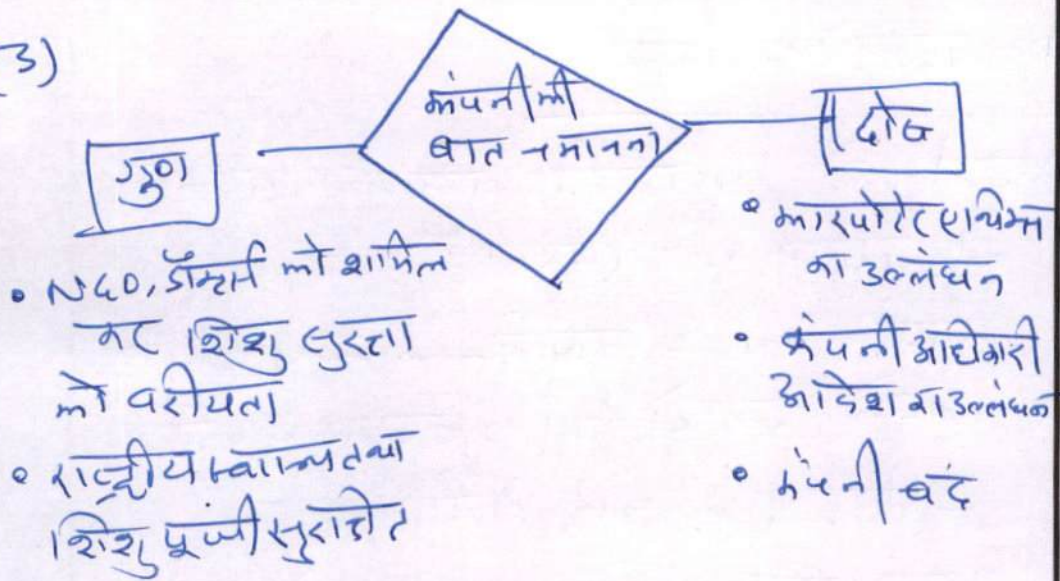 3)
कंपनी की
बात न मानना
गुण
• NGO, डॉक्टर्स को शामिल
कर शिशु सुरक्षा
को वरीयता
• राष्ट्रीय स्वास्थ्य तथा
शिशु पूंजी सुरक्षित
दोष
• कारपोरेट एथिक्स
का उल्लंघन
• कंपनी अधिकारी
आदेश का उल्लंघन
• कंपनी बंद